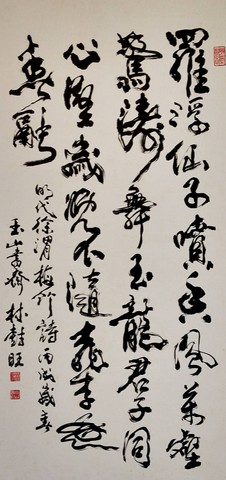 羅浮仙子噴香風萬壑
驚濤舞玉龍君子同
心堅歲晚不隨桃李
春融
明代徐渭梅 詩 歲春
玉山書齋 林 旺